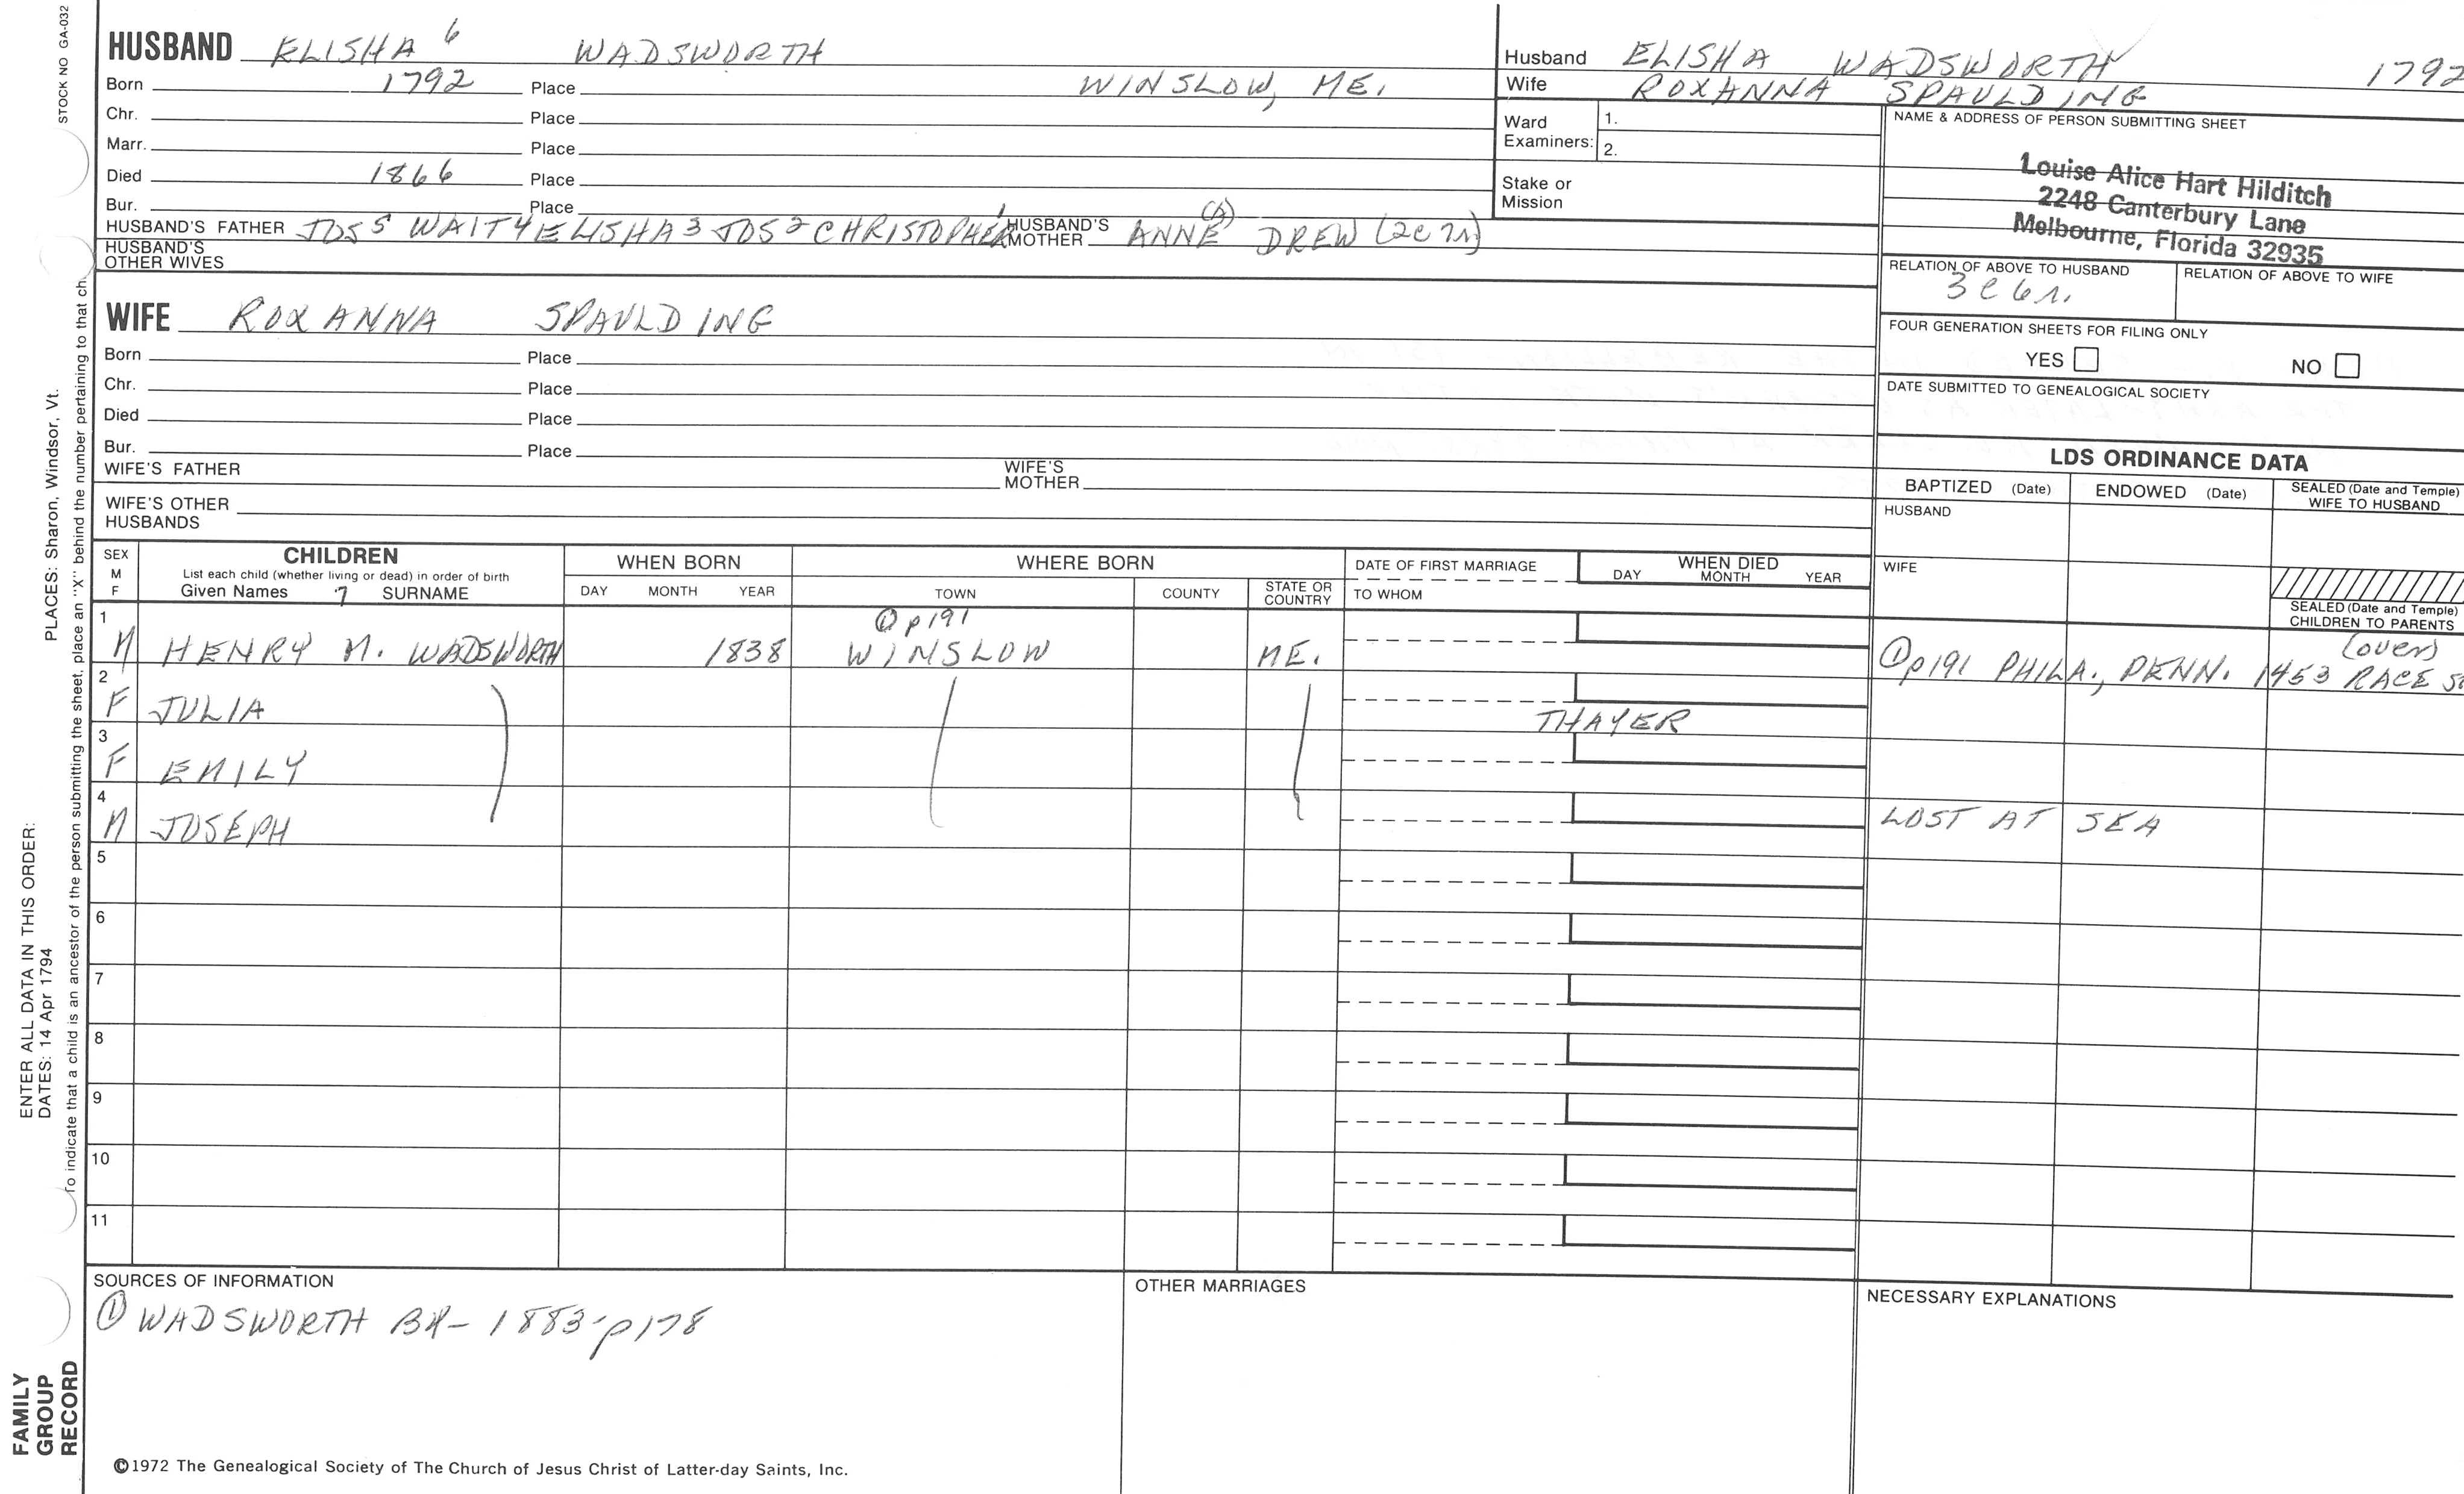 STOCK NO GA-032
PLACES: Sharon, Windsor, Vt.
ENTER ALL DATA IN THIS ORDER:
DATES: 14 Apr 1794
To indicate that a child is an ancestor of the person submitting the sheet, place an "X" behind the number pertaining to that ch
FAMILY
GROUP
RECORD
HUSBAND ELISHA 6 WADSWORTH
Born 1792 Place WINSLOW, ME.
Chr. Place
Marr. Place
Died 1866 Place
Bur. Place
HUSBAND'S FATHER JOS 5 WAIT 4 ELISHA 3 JOS 2 CHRISTOPHER 1 HUSBAND'S MOTHER ANNE (A) DREW (2C7R)
HUSBAND'S
OTHER WIVES
WIFE ROXANNA SPAULDING
Born Place
Chr. Place
Died Place
Bur. Place
WIFE'S FATHER WIFE'S MOTHER
WIFE'S OTHER
HUSBANDS
Husband ELISHA WADSWORTH 1792
Wife ROXANNA SPAULDING
Ward
Examiners:
1.
2.
Stake or
Mission
NAME & ADDRESS OF PERSON SUBMITTING SHEET
Louise Alice Hart Hilditch
2248 Canterbury Lane
Melbourne, Florida 32935
RELATION OF ABOVE TO HUSBAND RELATION OF ABOVE TO WIFE
3C6R.
FOUR GENERATION SHEETS FOR FILING ONLY
YES NO
DATE SUBMITTED TO GENEALOGICAL SOCIETY
LDS ORDINANCE DATA
BAPTIZED (Date) ENDOWED (Date) SEALED (Date and Temple)
WIFE TO HUSBAND
HUSBAND
WIFE
SEALED (Date and Temple)
CHILDREN TO PARENTS
SEX
M
F
CHILDREN
List each child (whether living or dead) in order of birth
Given Names 7 SURNAME
WHEN BORN
DAY MONTH YEAR
WHERE BORN
TOWN COUNTY STATE OR
COUNTRY
DATE OF FIRST MARRIAGE
TO WHOM
WHEN DIED
DAY MONTH YEAR
① p191 (over)
1 M HENRY M. WADSWORTH 1838 WINSLOW ME. ① p191 PHILA., PENN. 1453 RACE
2 F JULIA THAYER
3 F EMILY
4 M JOSEPH LOST AT SEA
5
6
7
8
9
10
11
SOURCES OF INFORMATION
① WADSWORTH BK- 1883-p178
OTHER MARRIAGES
NECESSARY EXPLANATIONS
©1972 The Genealogical Society of The Church of Jesus Christ of Latter-day Saints, Inc.